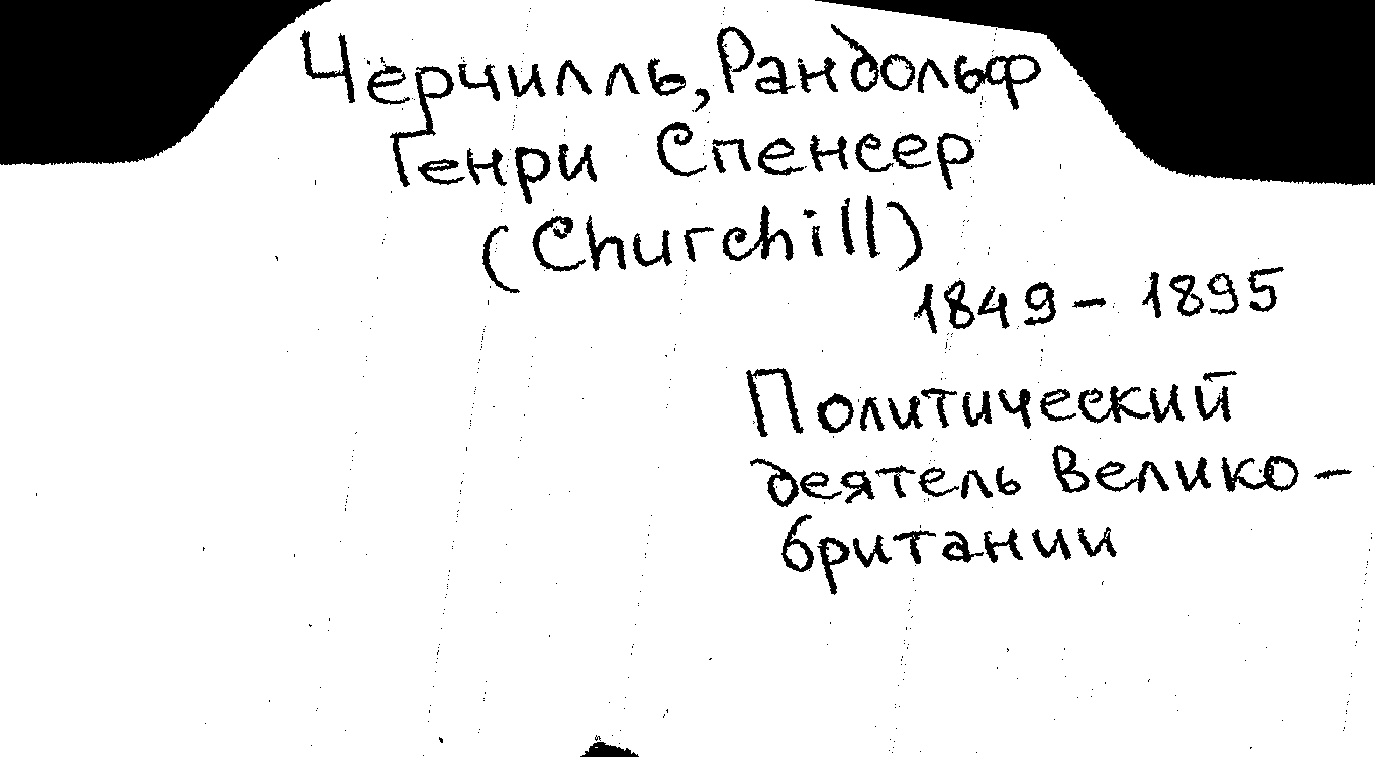 Черчилль, Рандольф
Генри Спенсер
(Churchill)
1849 - 1895
Политический
деятель Велико-
британии